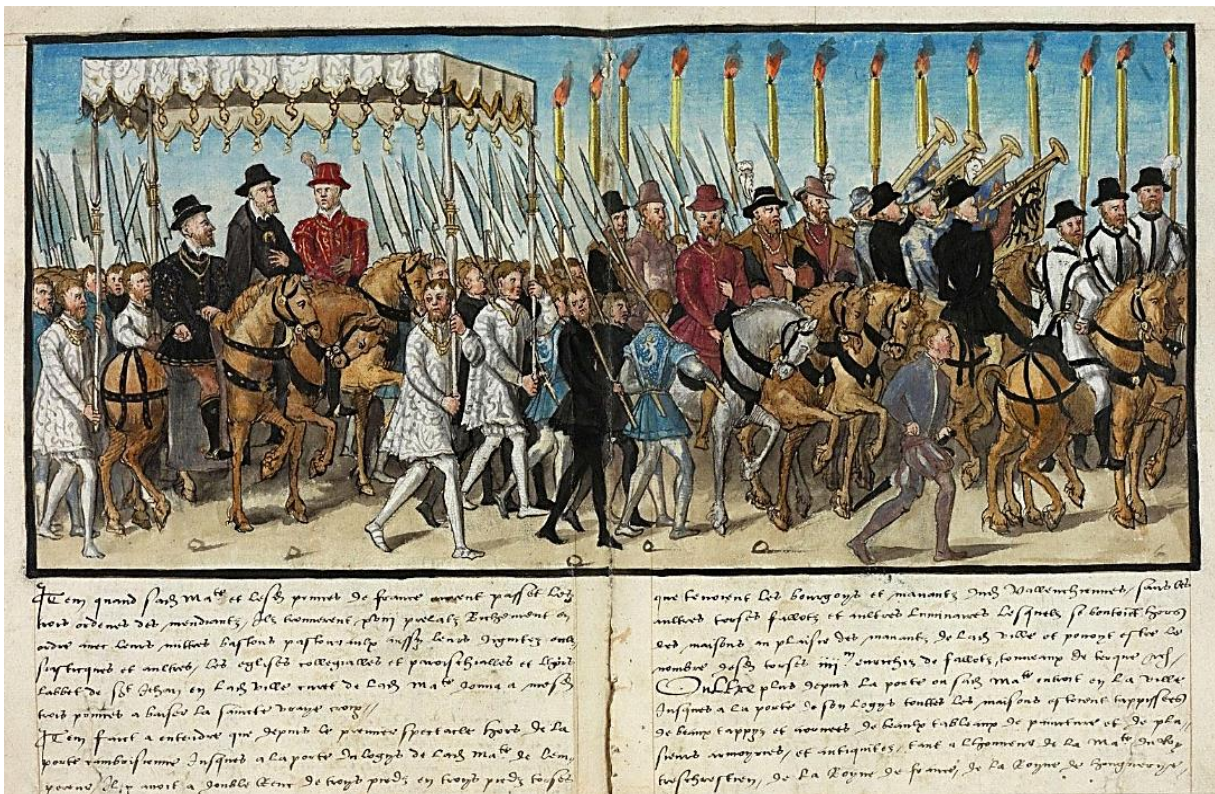 Item quand sad Mate et lesd princes de france eurent passet les
trois ordenes des mendiantz, Ilz trouverent xviii prelatz Richement en
ordre avec leurs mittres bastons pastouraulx aussy leurs dignitez
et aultres, les eglises collegialles et paroischialles et
labbet de St Jehan en lad ville curet de lad Mate donna a mesd
trois princes a baiser la saincte vraye croix //
Item faict a entendre que depuis le premier spectacle hors de la
porte cambrisienne Jusques a la porte du logys de lad Mate de lem
pereur, Il y avoit a double Renc de troys piedz en troys piedz torse
que tenoient les bourgoys et manantz dud Vallenchiennes, sans les
aultres torses fallotz et aultres luminaires lesquelz se hors
des maisons au plaisir des manans de lad ville et povoyt estre le
nombre desd torses iiiim enrichiz de fallotz, tonneaux de tercque
Oultre plus depuis la porte ou sad Mate entroit en la ville
Jusques a la porte de son logys touttes les maisons estoient tappissees
de beaux tappys et aornees de beaulx tableaux de paincture et de plu
sieurs armoyries, et antiquitez, tant a lhonneur de la Mate du Roy
treschrestien, de la Royne de france, de la Royne de honguerye,